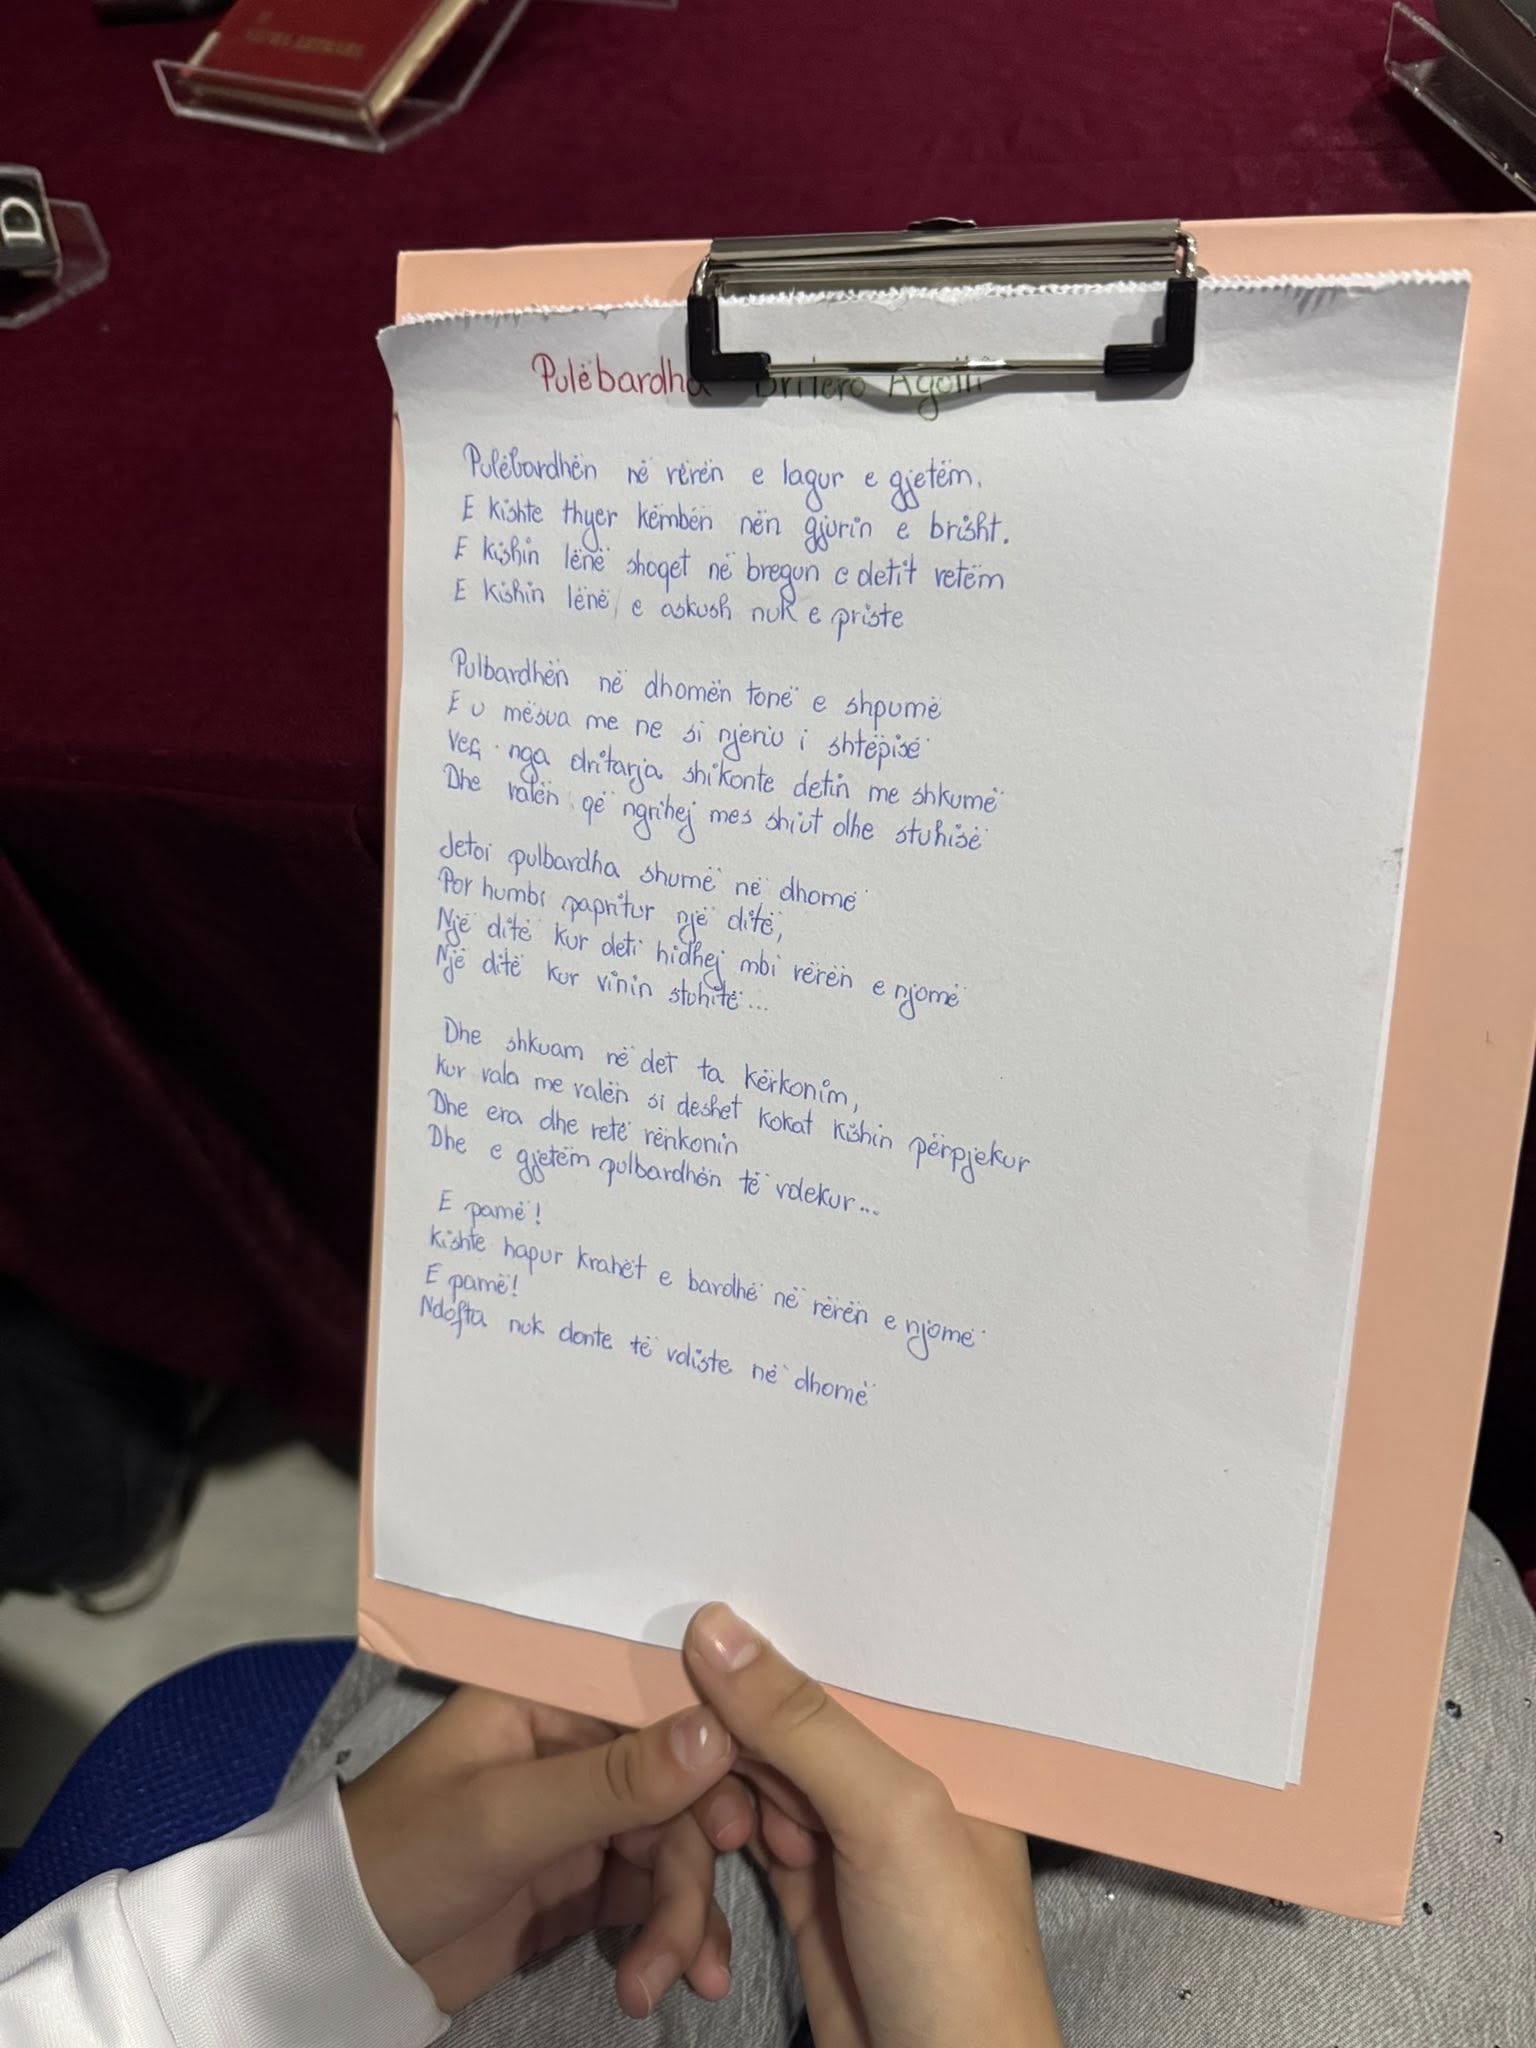 Pulëbardha Dritëro Agolli
Pulëbardhën në rërën e lagur e gjetëm.
E kishte thyer këmbën nën gjurin e brisht.
E kishin lënë shoqet në bregun e detit vetëm
E kishin lënë, e askush nuk e priste
Pulbardhën në dhomën tonë e shpumë
E u mësua me ne si njeriu i shtëpisë
Veç nga dritarja shikonte detin me shkumë
Dhe valën që ngrihej mes shiut dhe stuhisë
Jetoi pulbardha shumë në dhomë
Por humbi papritur një ditë,
Një ditë kur deti hidhej mbi rërën e njomë
Një ditë kur vinin stuhitë...
Dhe shkuam në det ta kërkonim,
Kur vala me valën si deshet kokat kishin përpjekur
Dhe era dhe retë rënkonin
Dhe e gjetëm pulbardhën të vdekur...
E pamë!
Kishte hapur krahët e bardhë në rërën e njomë
E pamë!
Ndofta nuk donte të vdiste në dhomë
D